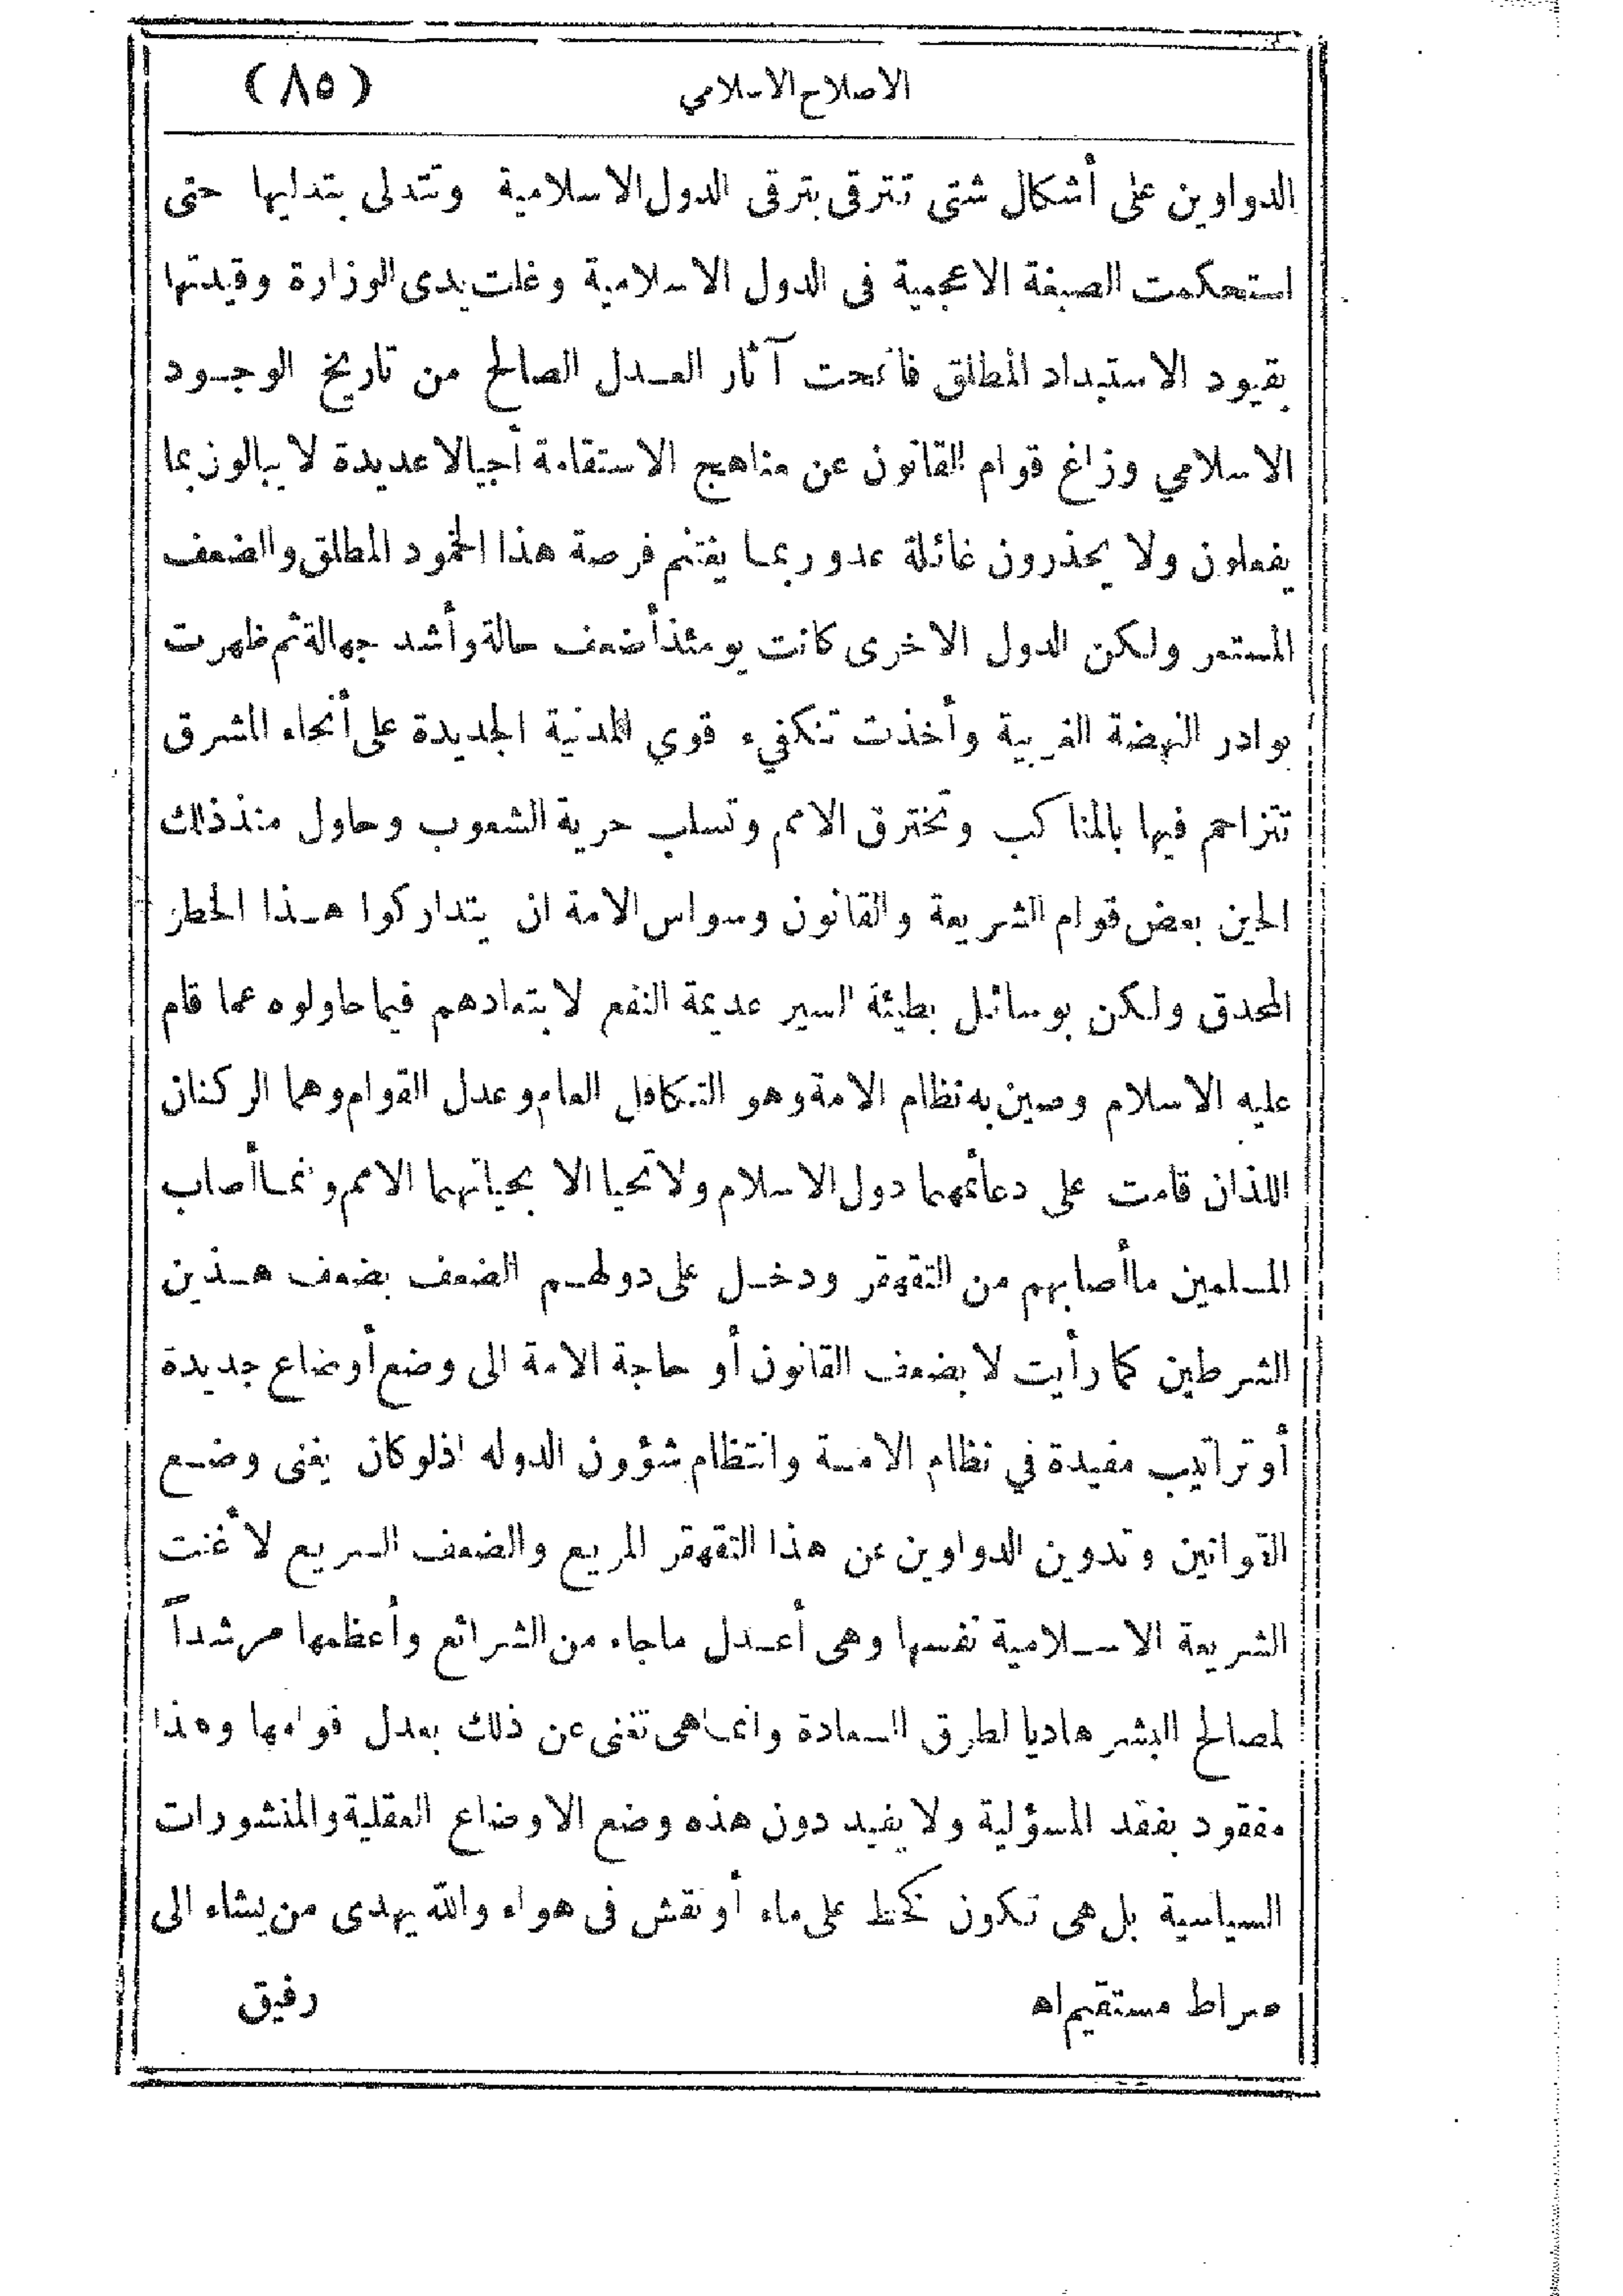 الاصلاح الاسلامي (٨٥)
الدواوين على أشكال شتى تترقى بترقى الدول الاسلامية وتتدلى بتدليها حتى
استحكمت الصبغة الاعجمية فى الدول الاسلامية وغلت يدى الوزارة وقيدتها
بقيود الاستبداد المطلق فانمحت آثار العدل الصالح من تاريخ الوجود
الاسلامي وزاغ قوام القانون عن مناهج الاستقامة أجيالا عديدة لا يبالون بما
يفعلون ولا يحذرون غائلة عدو ربما يغتنم فرصة هذا الخمود المطلق والضعف
المستمر ولكن الدول الاخرى كانت يومئذ أضعف حالة وأشد جهالة ثم ظهرت
بوادر النهضة الغربية وأخذت تنكفيء قوي المدنية الجديدة على أنحاء المشرق
تتزاحم فيها بالمناكب وتخترق الامم وتسلب حرية الشعوب وحاول منذ ذلك
الحين بعض قوام الشريعة والقانون وسواس الامة ان يتداركوا هذا الخطر
المحدق ولكن بوسائل بطيئة السير عديمة النفع لابتعادهم فيما حاولوه عما قام
عليه الاسلام وصين به نظام الامة وهو التكافل العام وعدل القوام وهما الركنان
اللذان قامت على دعائمهما دول الاسلام ولا تحيا الا بحياتهما الامم وانما أصاب
المسلمين ما أصابهم من التقهقر ودخل على دولهم الضعف بضعف هذين
الشرطين كما رأيت لا بضعف القانون أو حاجة الامة الى وضع أوضاع جديدة
أو تراتيب مفيدة في نظام الامة وانتظام شؤون الدوله اذ لو كان يغنى وضع
القوانين وتدوين الدواوين عن هذا التقهقر المريع والضعف السريع لأغنت
الشريعة الاسلامية نفسها وهى أعدل ما جاء من الشرائع وأعظمها مرشداً
لمصالح البشر هاديا لطرق السعادة وانما هى تغنى عن ذلك بعدل قوامها وهذا
مفقود بفقد المسؤلية ولا يفيد دون هذه وضع الاوضاع العقلية والمنشورات
السياسية بل هى تكون كخط على ماء أو نقش فى هواء والله يهدى من يشاء الى
صراط مستقيم اه رفيق